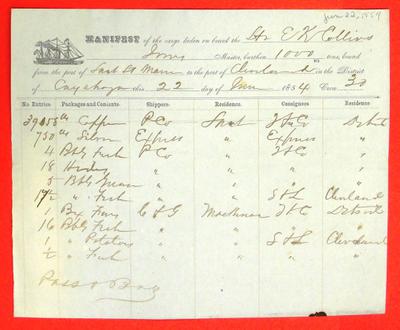 Jun 22, 1854
MANIFEST of the cargo laden on board the Str E K Collins
Jones Master, burthen 1000 tons, bound
from the port of Saut St Marie to the port of Cleveland in the District
of Cayahoga this 22 day of June 1854 Crew 30
No. Entries Packages and Contents. Shippers. Residence. Consignees Residence
lbs Copper P Co Saut J & Co Detroit
750 lbs Silver Express " Express "
4 Bbls Fish P Co " "
18 Hides " " " "
5 Bbls " " " "
" Fish " " S & L Cleveland
1 Bx Furs C & G Mackinac Detroit
16 Bbls Fish " " " "
1 " Potatoes " " S & L Cleveland
1/2 " Fish " " " "